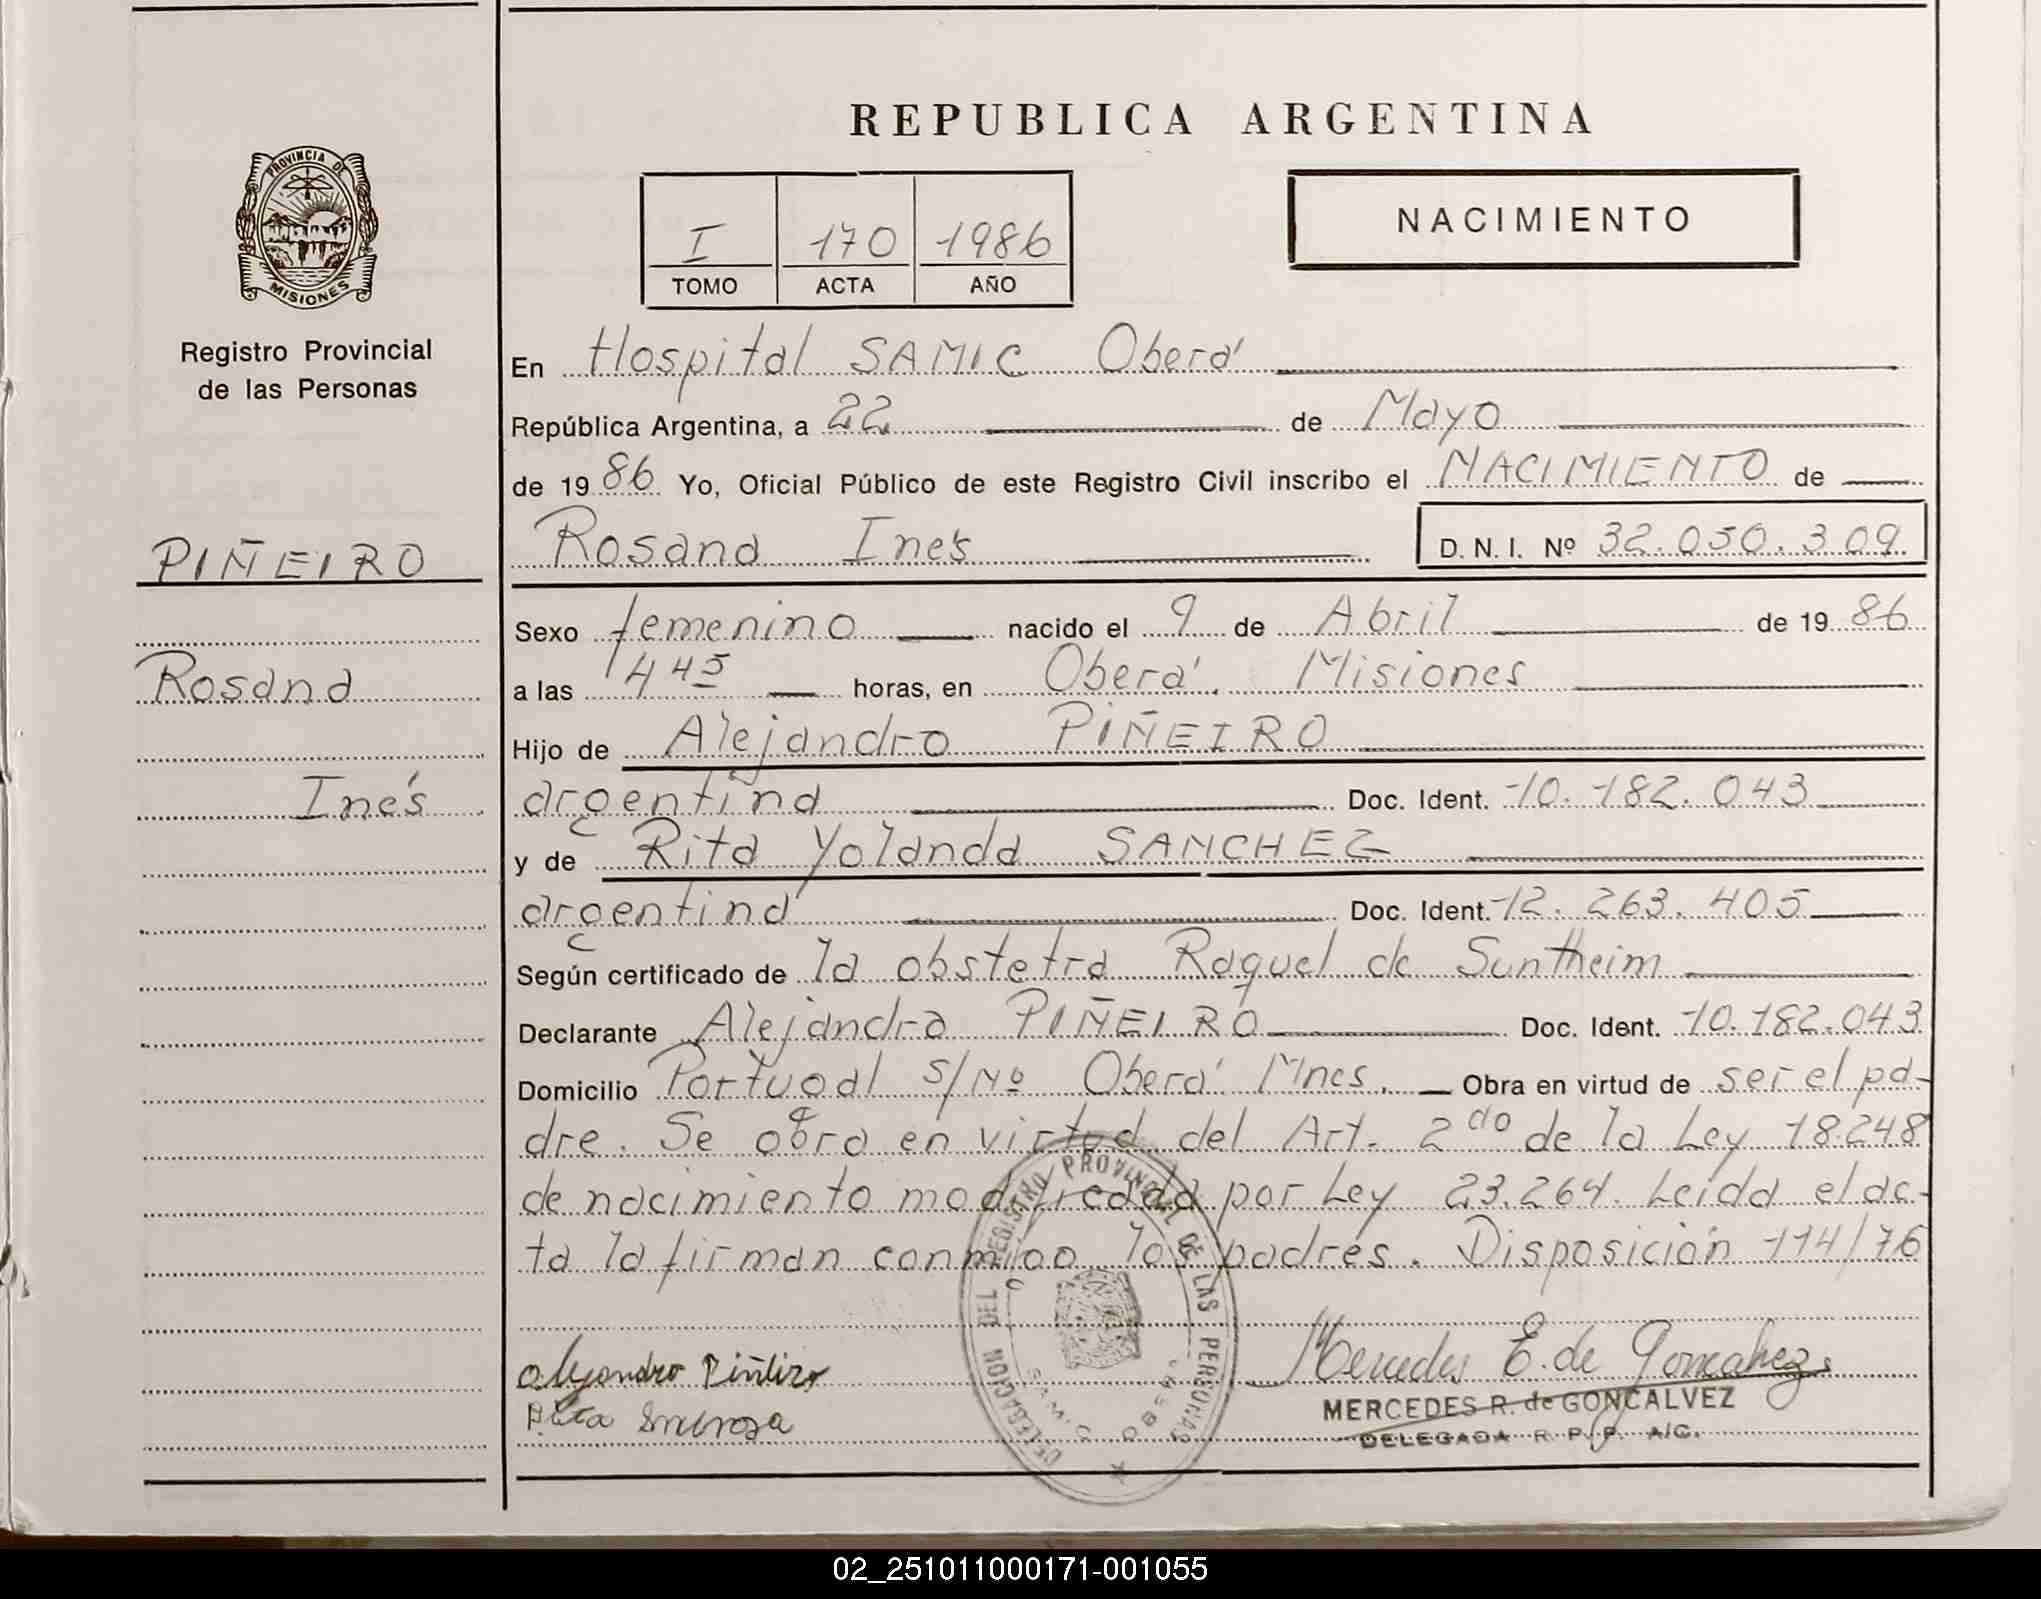 REPUBLICA ARGENTINA
PROVINCIA DE
MISIONES
Registro Provincial
de las Personas
I 170 1986
TOMO ACTA AÑO
NACIMIENTO
En Hospital SAMIC Oberá
República Argentina, a 22 de Mayo
de 1986 Yo, Oficial Público de este Registro Civil inscribo el NACIMIENTO de
PIÑEIRO
Rosana Inés
D. N. I. Nº 32.050.309
Sexo femenino nacido el 9 de Abril de 1986
Rosana
a las 4 45 horas, en Oberá. Misiones
Hijo de Alejandro PIÑEIRO
Inés
argentina Doc. Ident. 10.182.043
y de Rita Yolanda SANCHEZ
argentina Doc. Ident. 12.263.405
Según certificado de la obstetra Raquel de Suntheim
Declarante Alejandro PIÑEIRO Doc. Ident. 10.182.043
Domicilio Portugal S/Nº Oberá Mnes. Obra en virtud de ser el pa-
dre. Se obra en virtud del Art. 2do de la Ley 18.248
de nacimiento modificada por Ley 23.264. Leída el ac-
ta la firman conmigo los padres. Disposición 114/76
Alejandro Piñeiro
Rita
Mercedes E. de Goncalvez
MERCEDES R. de GONÇALVEZ
DELEGADA R. P. P. A/C.
DELEGACION DEL REGISTRO PROVINCIAL DE LAS PERSONAS
02_251011000171-001055